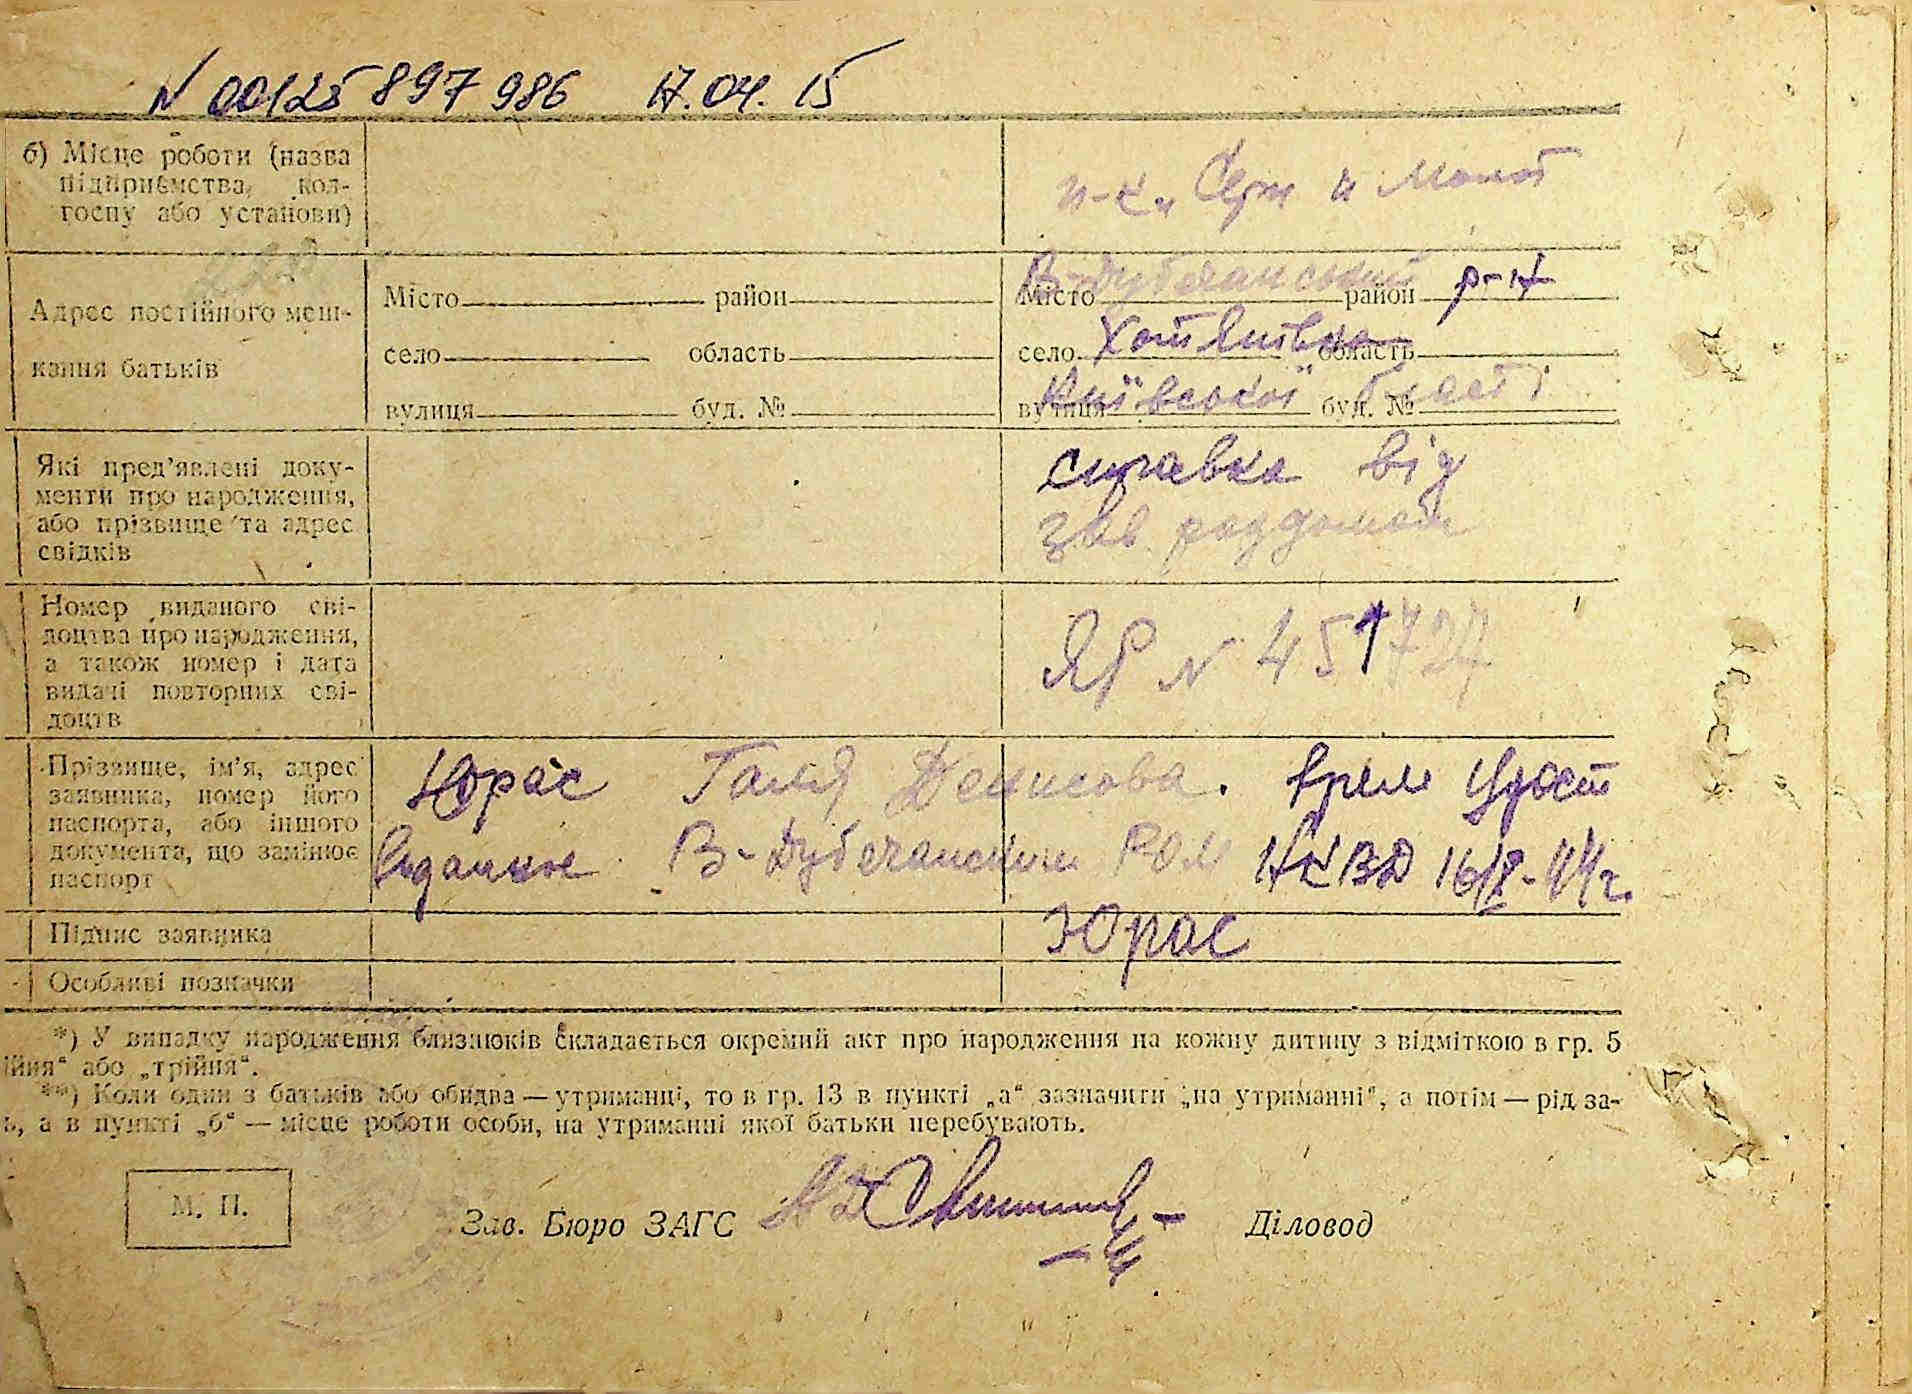 N 00125897986 17.04.15
б) Місце роботи (назва
підприємства, кол-
госпу або установи)
к-к „Серп и Молот
Адрес постійного меш-
кання батьків
Місто район
село область
вулиця буд. №
Місто В-Дубечанський район р-н
село Хотянівка область
вулиця Київської області буд. №
Які пред’явлені доку-
менти про народження,
або прізвище та адрес
свідків
справка від
зав роддомом
Номер виданого сві-
доцтва про народження,
а також номер і дата
видачі повторних сві-
доцтв
ЯР N 451727
Прізвище, ім’я, адрес
заявника, номер його
паспорта, або іншого
документа, що замінює
паспорт
Юрас Галя Денисова. врем удост
виданное В-Дубечанским РОМ НКВД 16/X-44г.
Підпис заявника
Юрас
Особливі позначки
*) У випадку народження близнюків складається окремий акт про народження на кожну дитину з відміткою в гр. 5
ійня“ або „трійня“.
**) Коли один з батьків або обидва — утриманці, то в гр. 13 в пункті „а“ зазначити „на утриманні“, а потім — рід за-
ь, а в пункті „б“ — місце роботи особи, на утриманні якої батьки перебувають.
М. П.
Зав. Бюро ЗАГС
Діловод